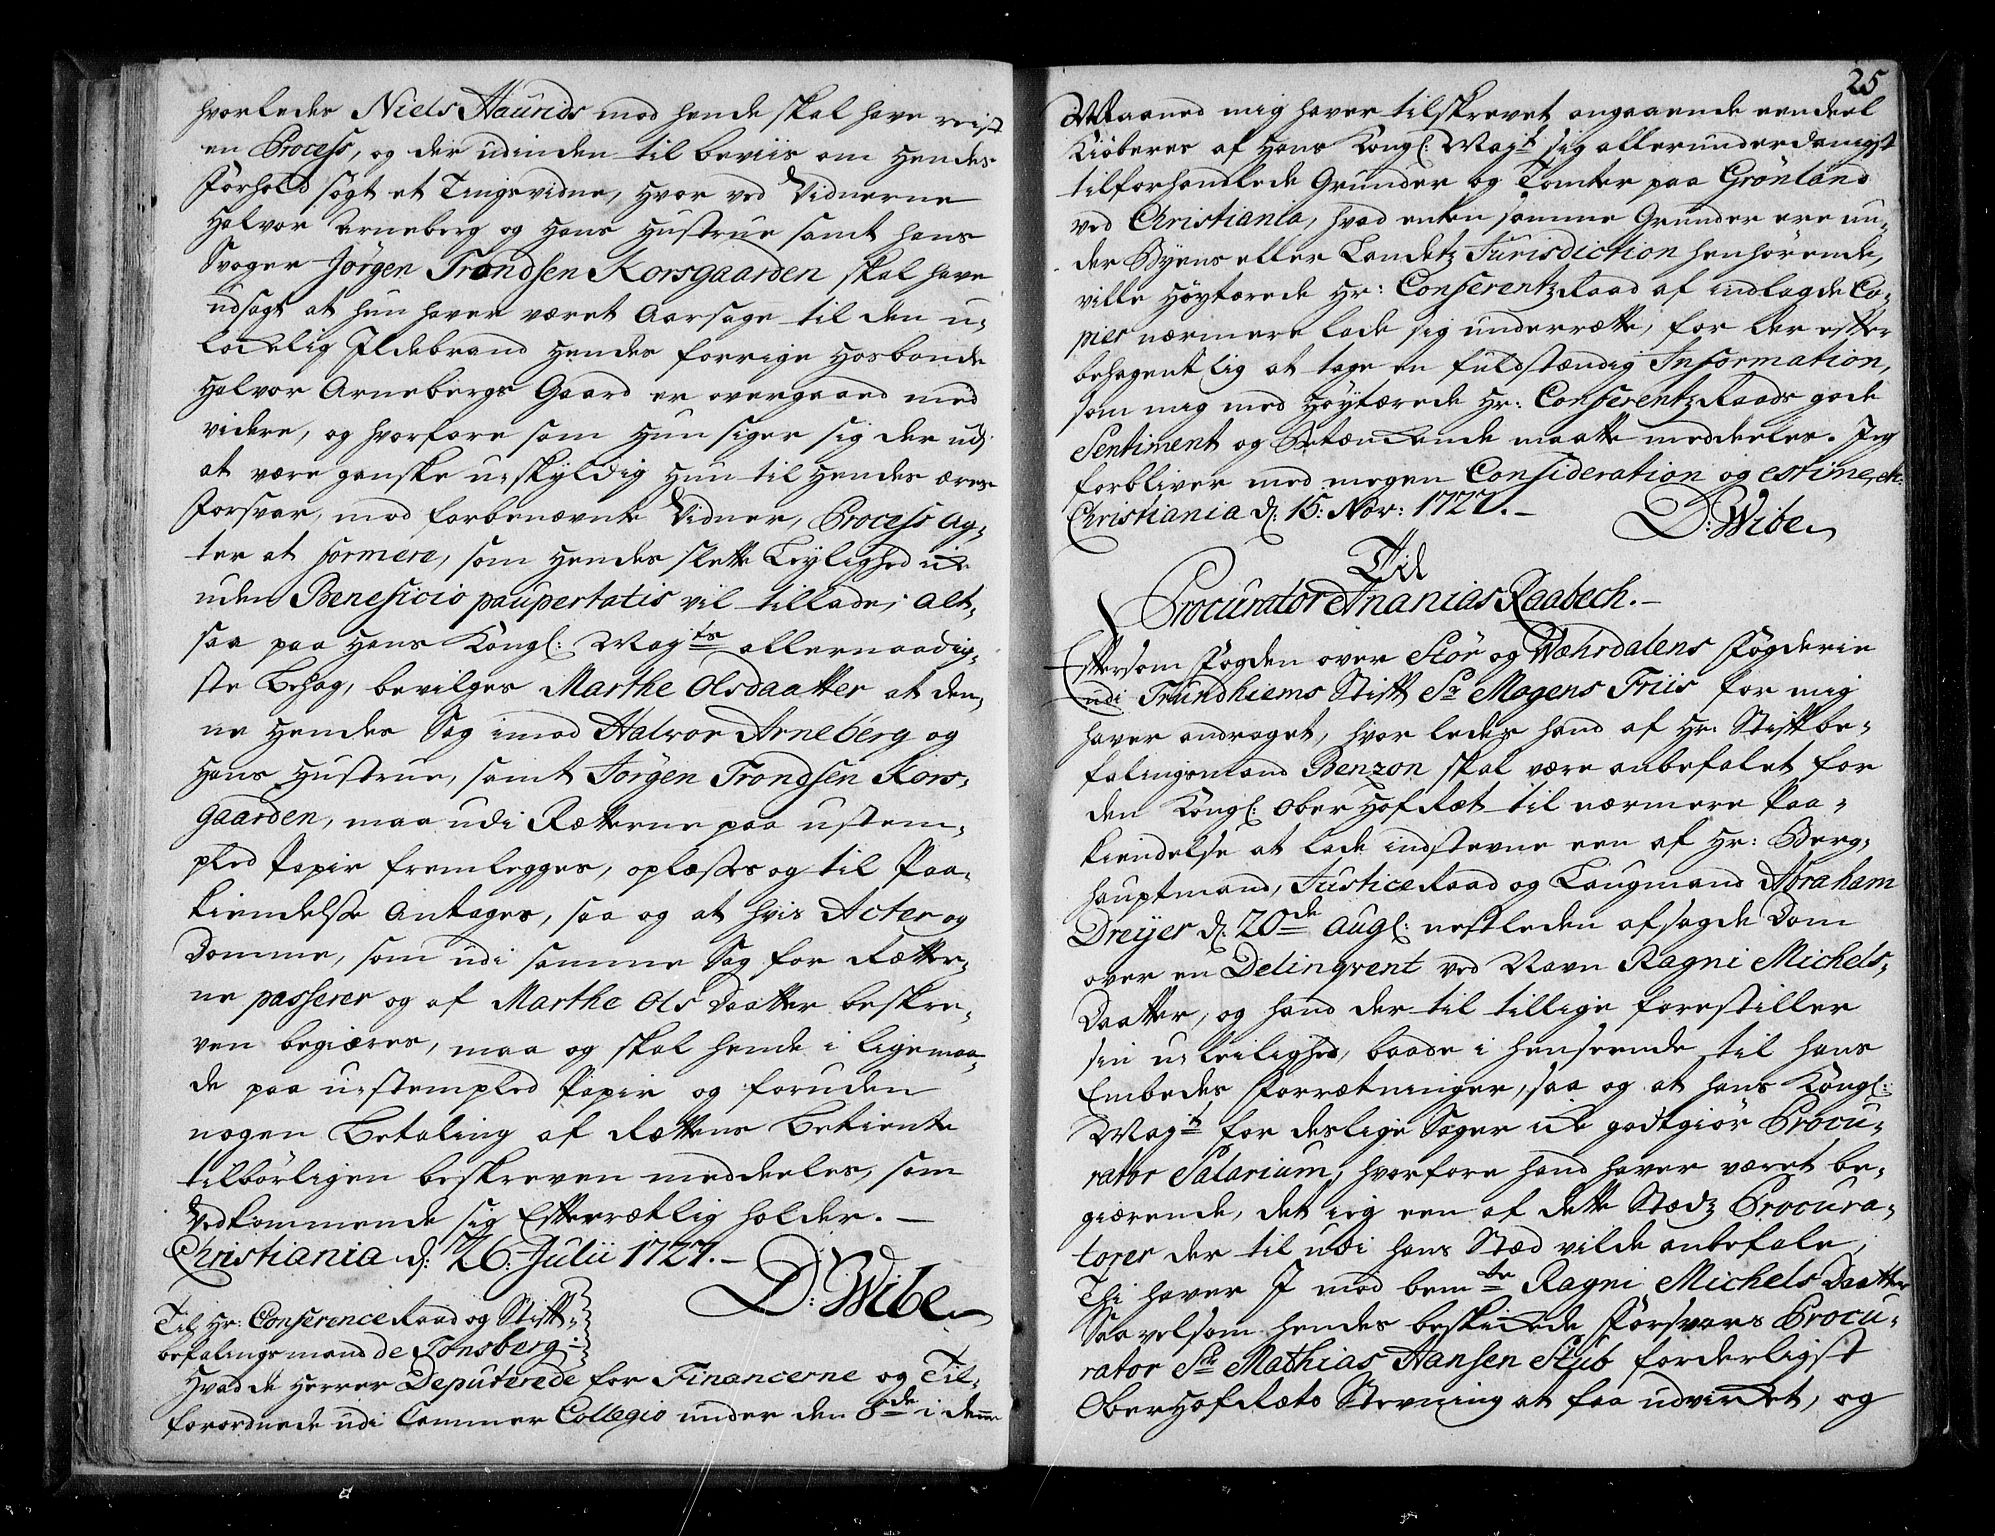 hvorledes Niels Haunds mod hende skal have reist
en Process, og der udinden til beviis om Hendes
Forhold søgt et Tingsvidne, hvor ved Vidnerne
Halvor Arneberg og Hans Hustrue samt hans
Svoger Jörgen Trondsen Korsgaarden skal have
udsagt at hun haver været Aarsage til den u-
lÿkkelig Ildebrand Hendes forrige Hosbonde
Halvor Arnebergs Gaard er overgaaed med
videre, og hvorfore som Hun siger sig der udj
at være ganske u-skÿldig Hun til Hendes æres
Forsvar, mod forbenævnte Vidner, Process ag-
ter at formere, som Hendes slette Leÿlighed icke
uden Beneficio paupertatis vil tillade; Alt-
saa paa Hans Kongl: Mayts allernaadig-
ste Behag, bevilges Marthe Olsdaatter at den-
ne Hendes Sag imod Halvor Arneberg og
Hans Hustrue, samt Jörgen Trondsen Kors-
gaarden, maa udi Rætterne paa ustem-
pled Papir fremlegges, oplæsses og til Paa-
kiendelse Antages, saa og at hvis Acter og
Domme, som udi samme Sag for Rætter-
ne passerer og af Marthe Ols Daatter beskre-
ven begiæres, maa og skal hende i ligemaa-
de paa u-stempled Papir og foruden
nogen Betaling af Rættens Betiente
tilbörligen beskreven meddeeles, som
Vedkommende sig Efterrætlig holder. —
Christiania d: 26: Julii 1727. —
D: Wibe
Til Hr: Conference Raad og Stift-
befalingsmand de Tonsberg: —
Hvad de Herrer Deputerede for Financerne og Til-
forordnede udi Cammer Collegio under den 8de i denne
25
Maaned mig haver tilskrevet angaaende eendeel
Kiöberes af Hans Kongl: Mayt sig allerunderdanigst
tilforhandlede Grunder og Tomter paa Grönland
ved Christiania, hvad enten samme Grunder ere un-
der Byens eller Landetz Jurisdiction henhørende,
ville Höytærede Hr: Conferentz Raad af indlagde Co-
pier nærmere lade sig underrætte, for der efter
behagentlig at tage en fuldstændig Information,
som mig med Höytærede Hr: Conferentz Raads gode
Sentiment og Betænckende maatte meddeeles. Jeg
forbliver med megen Consideration og estime, etc:
Christiania d: 15: Nov: 1727. —
D: Wibe
Til
Procurator Ananias Raabech. —
Eftersom Fogden over Stör og Wæhrdalens Fogderie
udi Trundhiems Stift Sr Mogens Friis for mig
haver andraget, hvorledes hand af Hr: Stiftbe-
falingsmand Benzon skal være anbefalet for
den Kongl: Ober Hof Ræt til nærmere Paa-
kiendelse at lade indstevne een af Hr: Berg-
hauptmand, Justice Raad og Laugmand Abraham
Dreÿer d: 20de Augl: nestleden afsagde Dom
over en Delinqvent ved Navn Ragni Michels-
Daatter, og hand der til tillige forestiller
sin u-leilighed, baade i henseende til hans
Embedes Forrætninger, saa og at hans Kongl:
Mayt for deslige Sager icke godtgiör Procu-
rator Salarium; hvorfore hand haver været be-
giærende, det ieg een af dette Stædz Procura-
torer der til udi hans Stæd vilde anbefale;
Thi haver I med bemte Ragni Michels Daatter
Saavelsom hendes beskickede Forsvars Procu-
rator Sr Mathias Hansen Stub forderligst
Ober Hof Ræts Stevning at faa udvircket, og